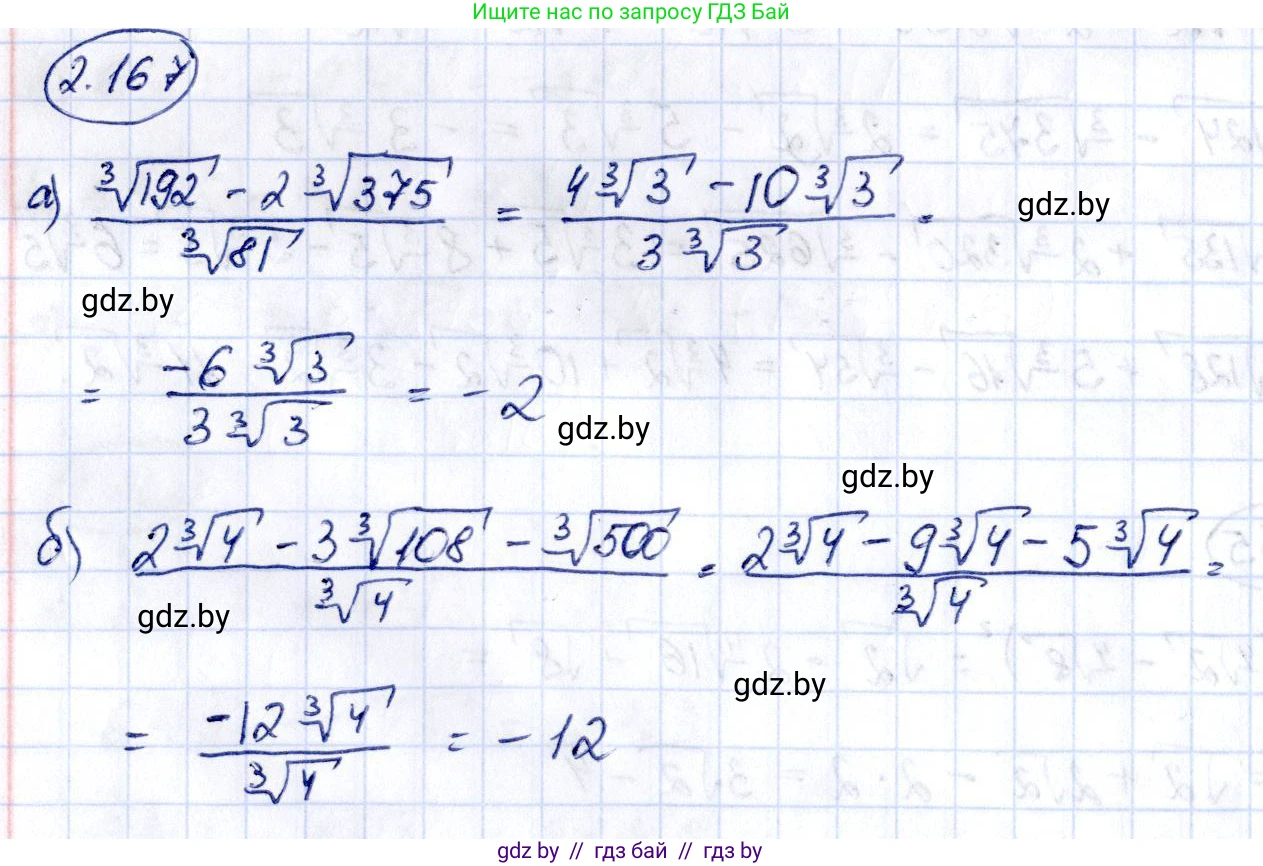 Ищите нас по запросу ГДЗ Бай
2.167
а) (∛192 - 2∛375) / ∛81 = (4∛3 - 10∛3) / (3∛3) =
gdz.by
gdz.by
= (-6∛3) / (3∛3) = -2
gdz.by
gdz.by
б) (2∛4 - 3∛108 - ∛500) / ∛4 = (2∛4 - 9∛4 - 5∛4) / ∛4 =
gdz.by
gdz.by
= (-12∛4) / ∛4 = -12
gdz.by // гдз бай // гдз by